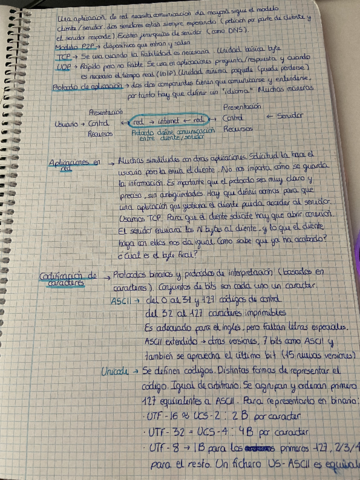 Una aplicación de red necesita comunicación. La mayoría sigue el modelo
cliente / servidor. Los servidores están siempre esperando (petición por parte de cliente y
el servidor responde). Existen jerarquías de servidor (como DNS).
Modelo P2P → dispositivos que entran y salen
TCP → Se usa cuando la fiabilidad es necesaria. Unidad básica byte
UDP → Rápido pero no fiable. Se usa en aplicaciones pregunta/respuesta y cuando
es necesario el tiempo real (VoIP). Unidad mínima paquete (puede perderse)
Protocolo de aplicación → los dos componentes tienen que comunicarse y entenderse,
por tanto hay que definir un "idioma". Muchas maneras
Presentación Presentación
Usuario → Control red → internet ← red Control ← Servidor
Recursos Protocolo define comunicación Recursos
entre cliente/servidor
Aplicaciones en → Muchas similitudes con otras aplicaciones. Solicitud la hace el
red usuario pero la envía el cliente. No nos importa cómo se guarda
la información. Es importante que el protocolo sea muy claro y
preciso, sin ambigüedades. Hay que definir normas para que
una aplicación que gestiona el cliente pueda acceder al servidor.
Usamos TCP. Para que el cliente solicite hay que abrir conexión.
El servidor enviará los N bytes al cliente, y lo que el cliente
haga con ellos nos da igual. Como sabe que ya ha acabado?
¿Cuál es el byte final?
Codificación de → Protocolos binarios y protocolos de interpretación (basados en
caracteres caracteres). Conjuntos de bits son cada uno un caracter.
ASCII → del 0 al 31 y 127 códigos de control
del 32 al 127 caracteres imprimibles
Es adecuado para el inglés, pero faltan letras especiales.
ASCII extendido → otras versiones, 7 bits como ASCII y
también se aprovecha el último bit (15 nuevas versiones)
Unicode → Se definen códigos. Distintas formas de representar el
código. Igual de arbitrario. Se agrupan y ordenan primero
127 equivalentes a ASCII. Para representarlo en binario:
· UTF-16 ≈ UCS-2 : 2B por caracter
· UTF-32 = UCS-4 : 4B por caracter
· UTF-8 → 1B para los primeros 127, 2/3/4
para el resto. Un fichero US-ASCII es equivale